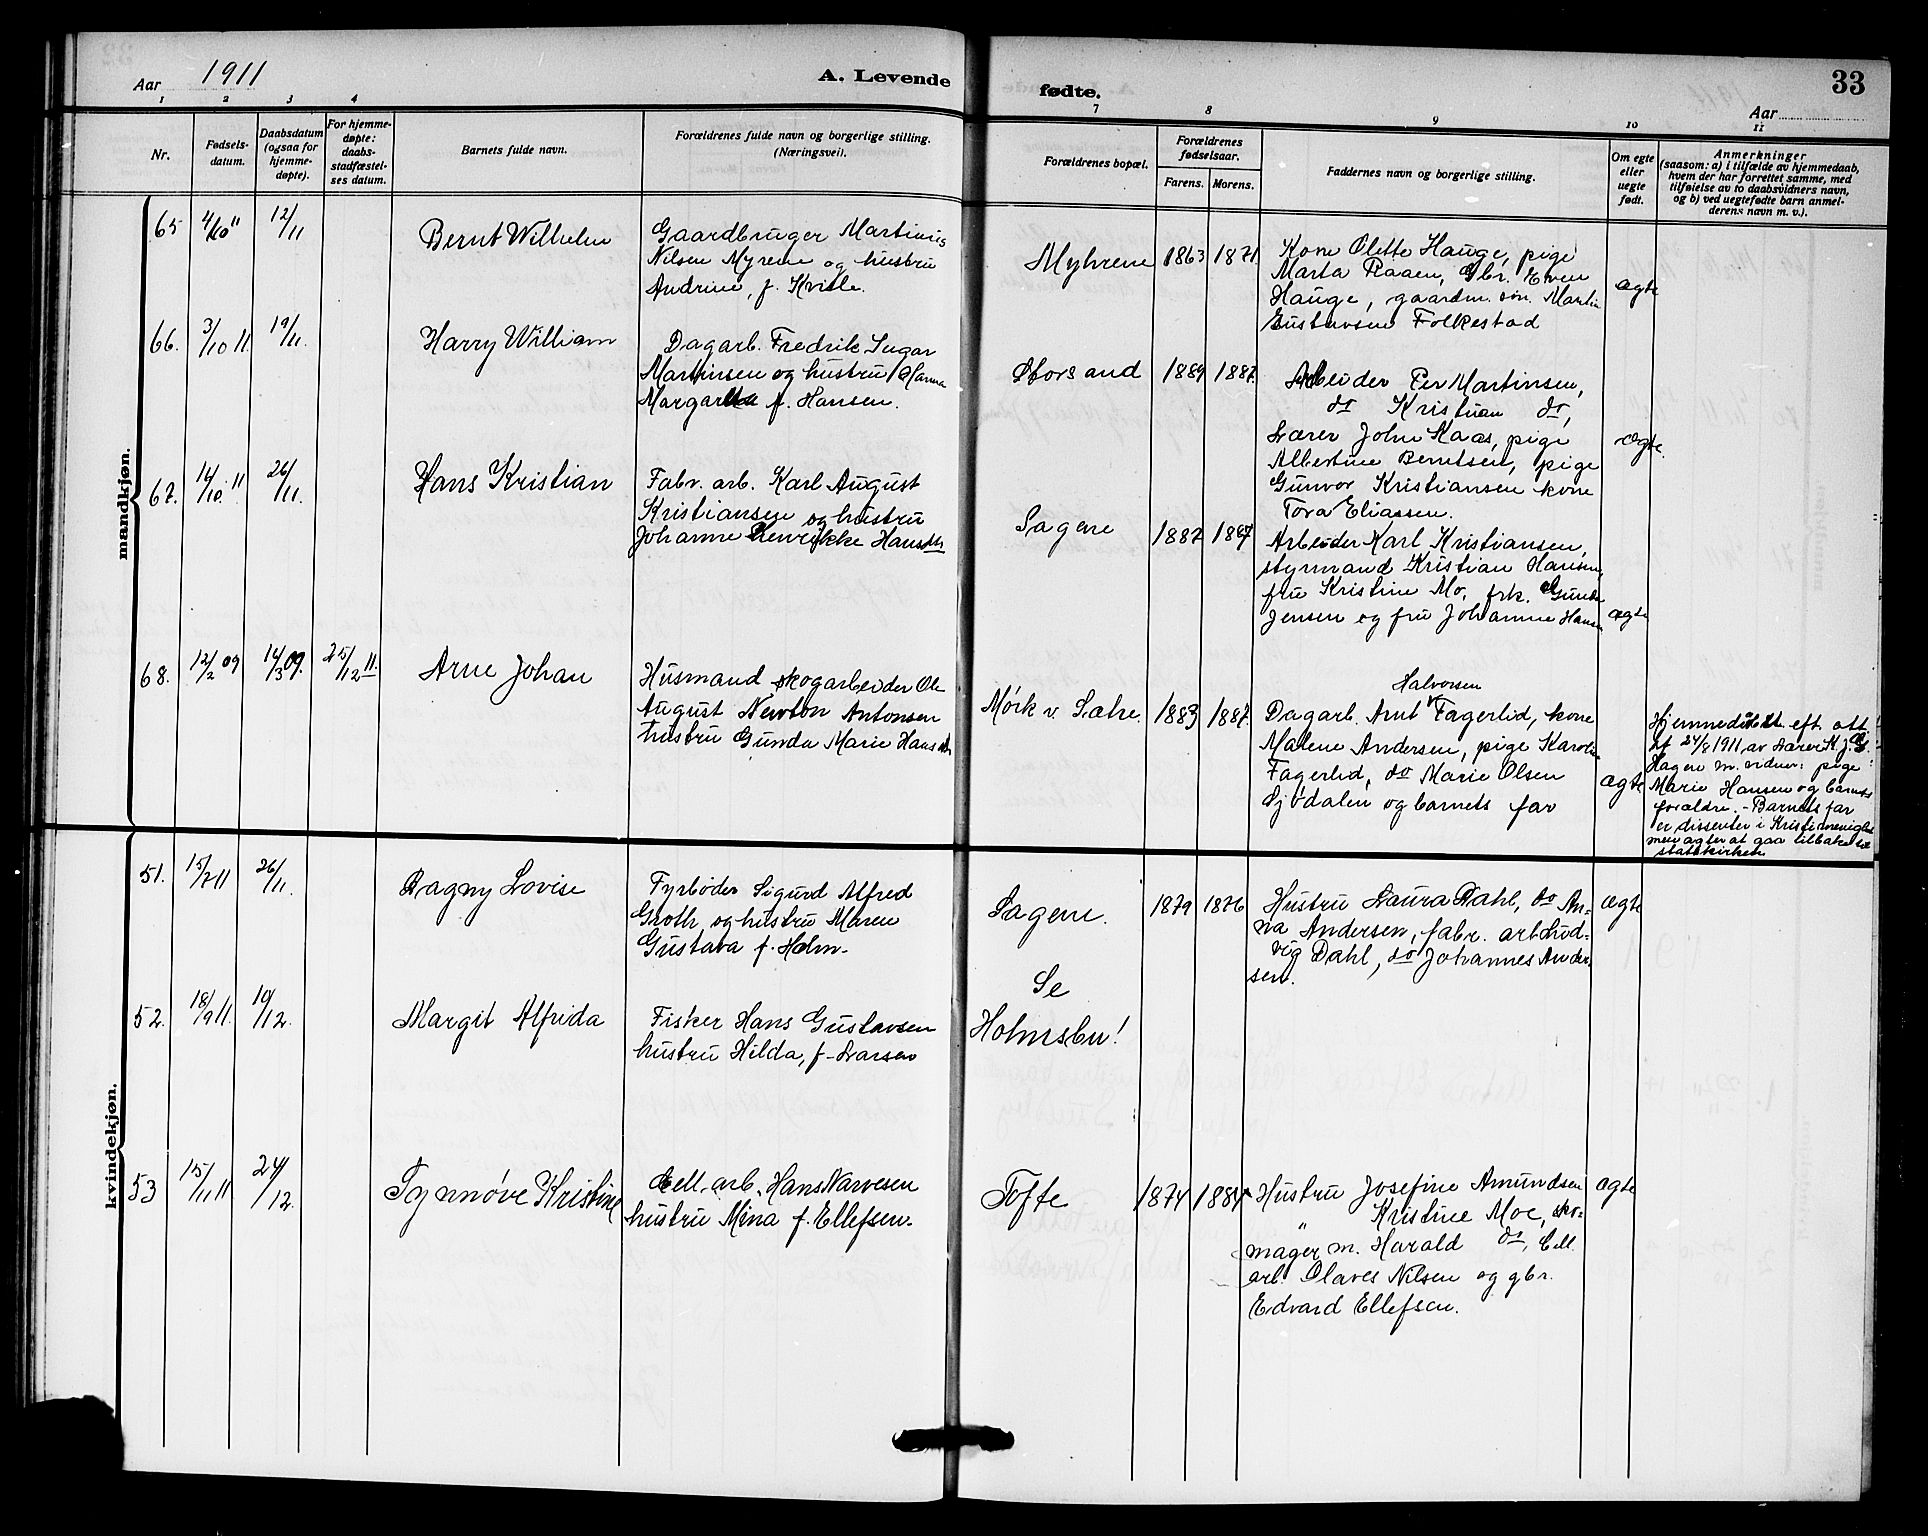 Aar 1911
A. Levende
fødte.
33
Aar
1 2 3 4
7 8 9 10 11
Nr.
Fødsels-
datum.
Daabsdatum
(ogsaa for
hjemme-
døpte).
For hjemme-
døpte:
daabs-
stadfæstel-
ses datum.
Barnets fulde navn.
Forældrenes fulde navn og borgerlige stilling.
(Næringsvei).
Forældrenes bopæl.
Forældrenes
fødselsaar.
Farens. Morens.
Faddernes navn og borgerlige stilling.
Om egte
eller
uegte
født.
Anmerkninger
(saasom: a) i tilfælde av hjemmedaab,
hvem der har forrettet samme, med
tilføielse av to daabsvidners navn,
og b) ved uegtefødte barn anmel-
derens navn m. v.).
mandkjøn.
65 4/10 11 12/11
Bernt Wilhelm
Gaardbruger Martinius
Nilsen Myrene og hustru
Andrine, f. Kvisle.
Myhrene 1863 1871
Kone Olette Hauge, pige
Marta Raaen, Gbr. Even
Hauge, gaardm. søn Martin
Gustavsen Folkestad
ægte
66. 3/10 11. 19/11.
Harry William
Dagarb. Fredrik
Martinsen og hustru Hanna
f. Hansen.
Storsand 1889 1887.
Arbeider Per Martinsen,
do Kristian do,
Lærer John Kaas, pige
Albertine Berntsen, pige
Gunvor Kristiansen kone
Tora Eliassen.
ægte.
67. 14/10 11 26/11.
Hans Kristian
Fabr. arb. Karl August
Kristiansen og hustru
Johanne Henrikke Hansdtr
Sagene 1887
Arbeider Karl Kristiansen,
styrmand Kristian Hansen,
fru Kristine Mo, frk. Gunda
Jensen og fru Johanne Hansen
ægte
68. 12/2 09 14/3 09. 25/12 11.
Arne Johan
Husmand skogarbeider Ole
August Newton Antonsen
hustru Gunda Marie Hansdtr
Mørk v. Sætre. 1883 1887.
Halvorsen
Dagarb. Arnt Fagerlid, kone
Malene Andersen, pige Karoline
Fagerlid, do Marie Olsen
Sjødalen og barnets far
ægte
Hjemmedøbt eft. att.
af 24/8 1911, av Lærer H. J.
Hagen m. vidner: pige
Marie Hansen og barnets
forældre. - Barnets far
er dissenter i
men agter at gaa tilbake til
statskirken
kvindekjøn.
51. 15/7 11 26/11.
Dagny Lovise
Fyrbøder Sigurd Alfred
Groth og hustru Maren
Gustava f. Holm.
Sagene. 1879 1876
Hustru Laura Dahl, do An=
na Andersen, fabr. arb Lud=
vig Dahl, do Johannes Ander-
sen.
ægte
52. 18/9 11. 10/12.
Margit Alfrida
Fisker Hans Gustavsen
hustru Hilda, f. Larsen
Se
Holmsbu!
53 15/11 11 24/12.
Synnøve Kristine
Cell. arb. Hans Narvesen
hustru Mina f. Ellefsen.
Tofte 1874 1884
Hustru Josefine Amundsen
" Kristine Moe, sko-
mager m. Harald do, Cell.
arb. Olaves Nilsen og gbr.
Edvard Ellefsen.
ægte